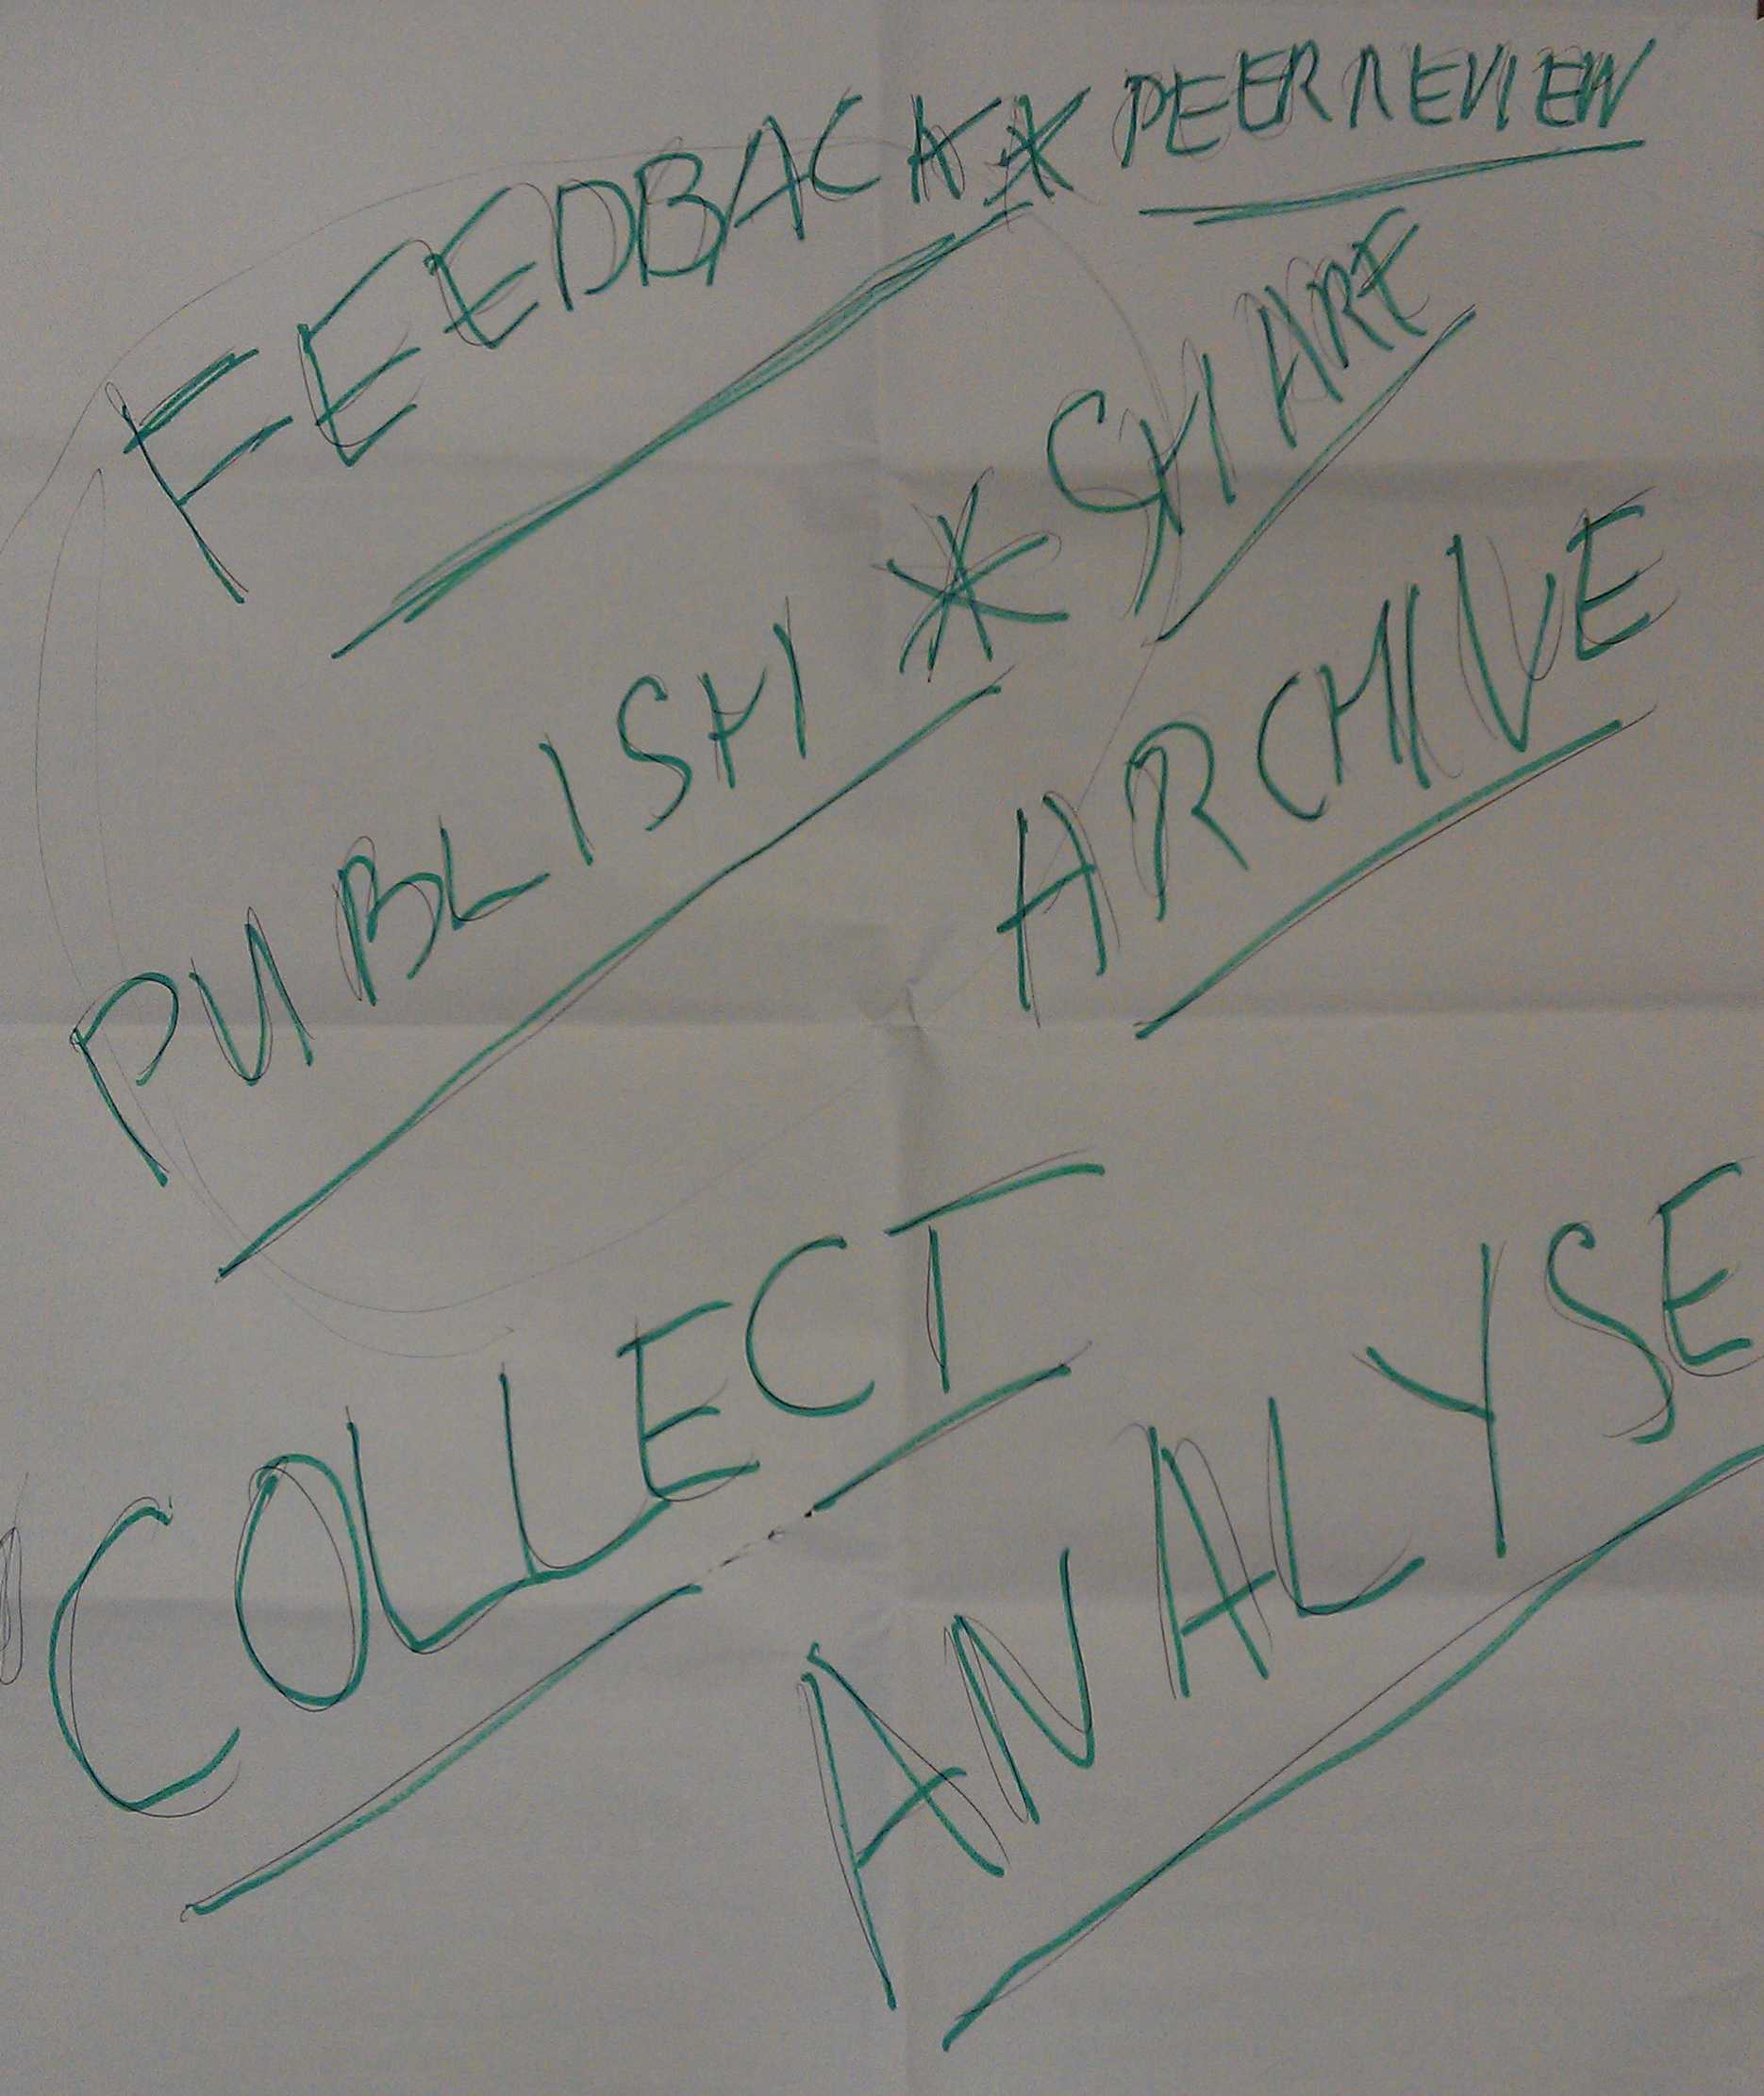 FEEDBACK * PEER REVIEW
PUBLISH * SHARE
ARCHIVE
COLLECT
ANALYSE